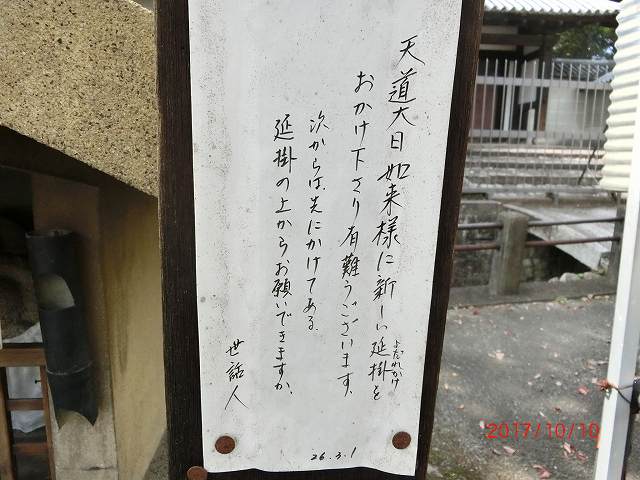 天道大日如来様に新しい延掛を
よだれかけ
おかけ下さり有難うございます。
次からは、先にかけてある
延掛の上からお願いできますか。
世話人
26.3.1
2017/10/10